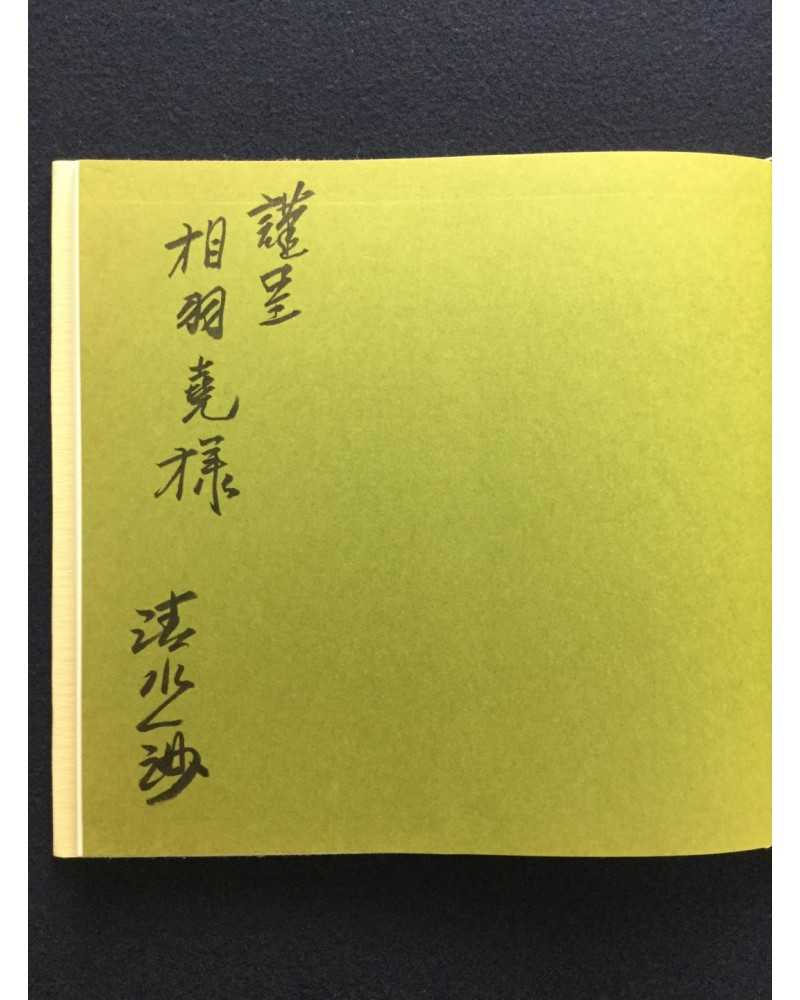 謹呈
相羽堯様
清水